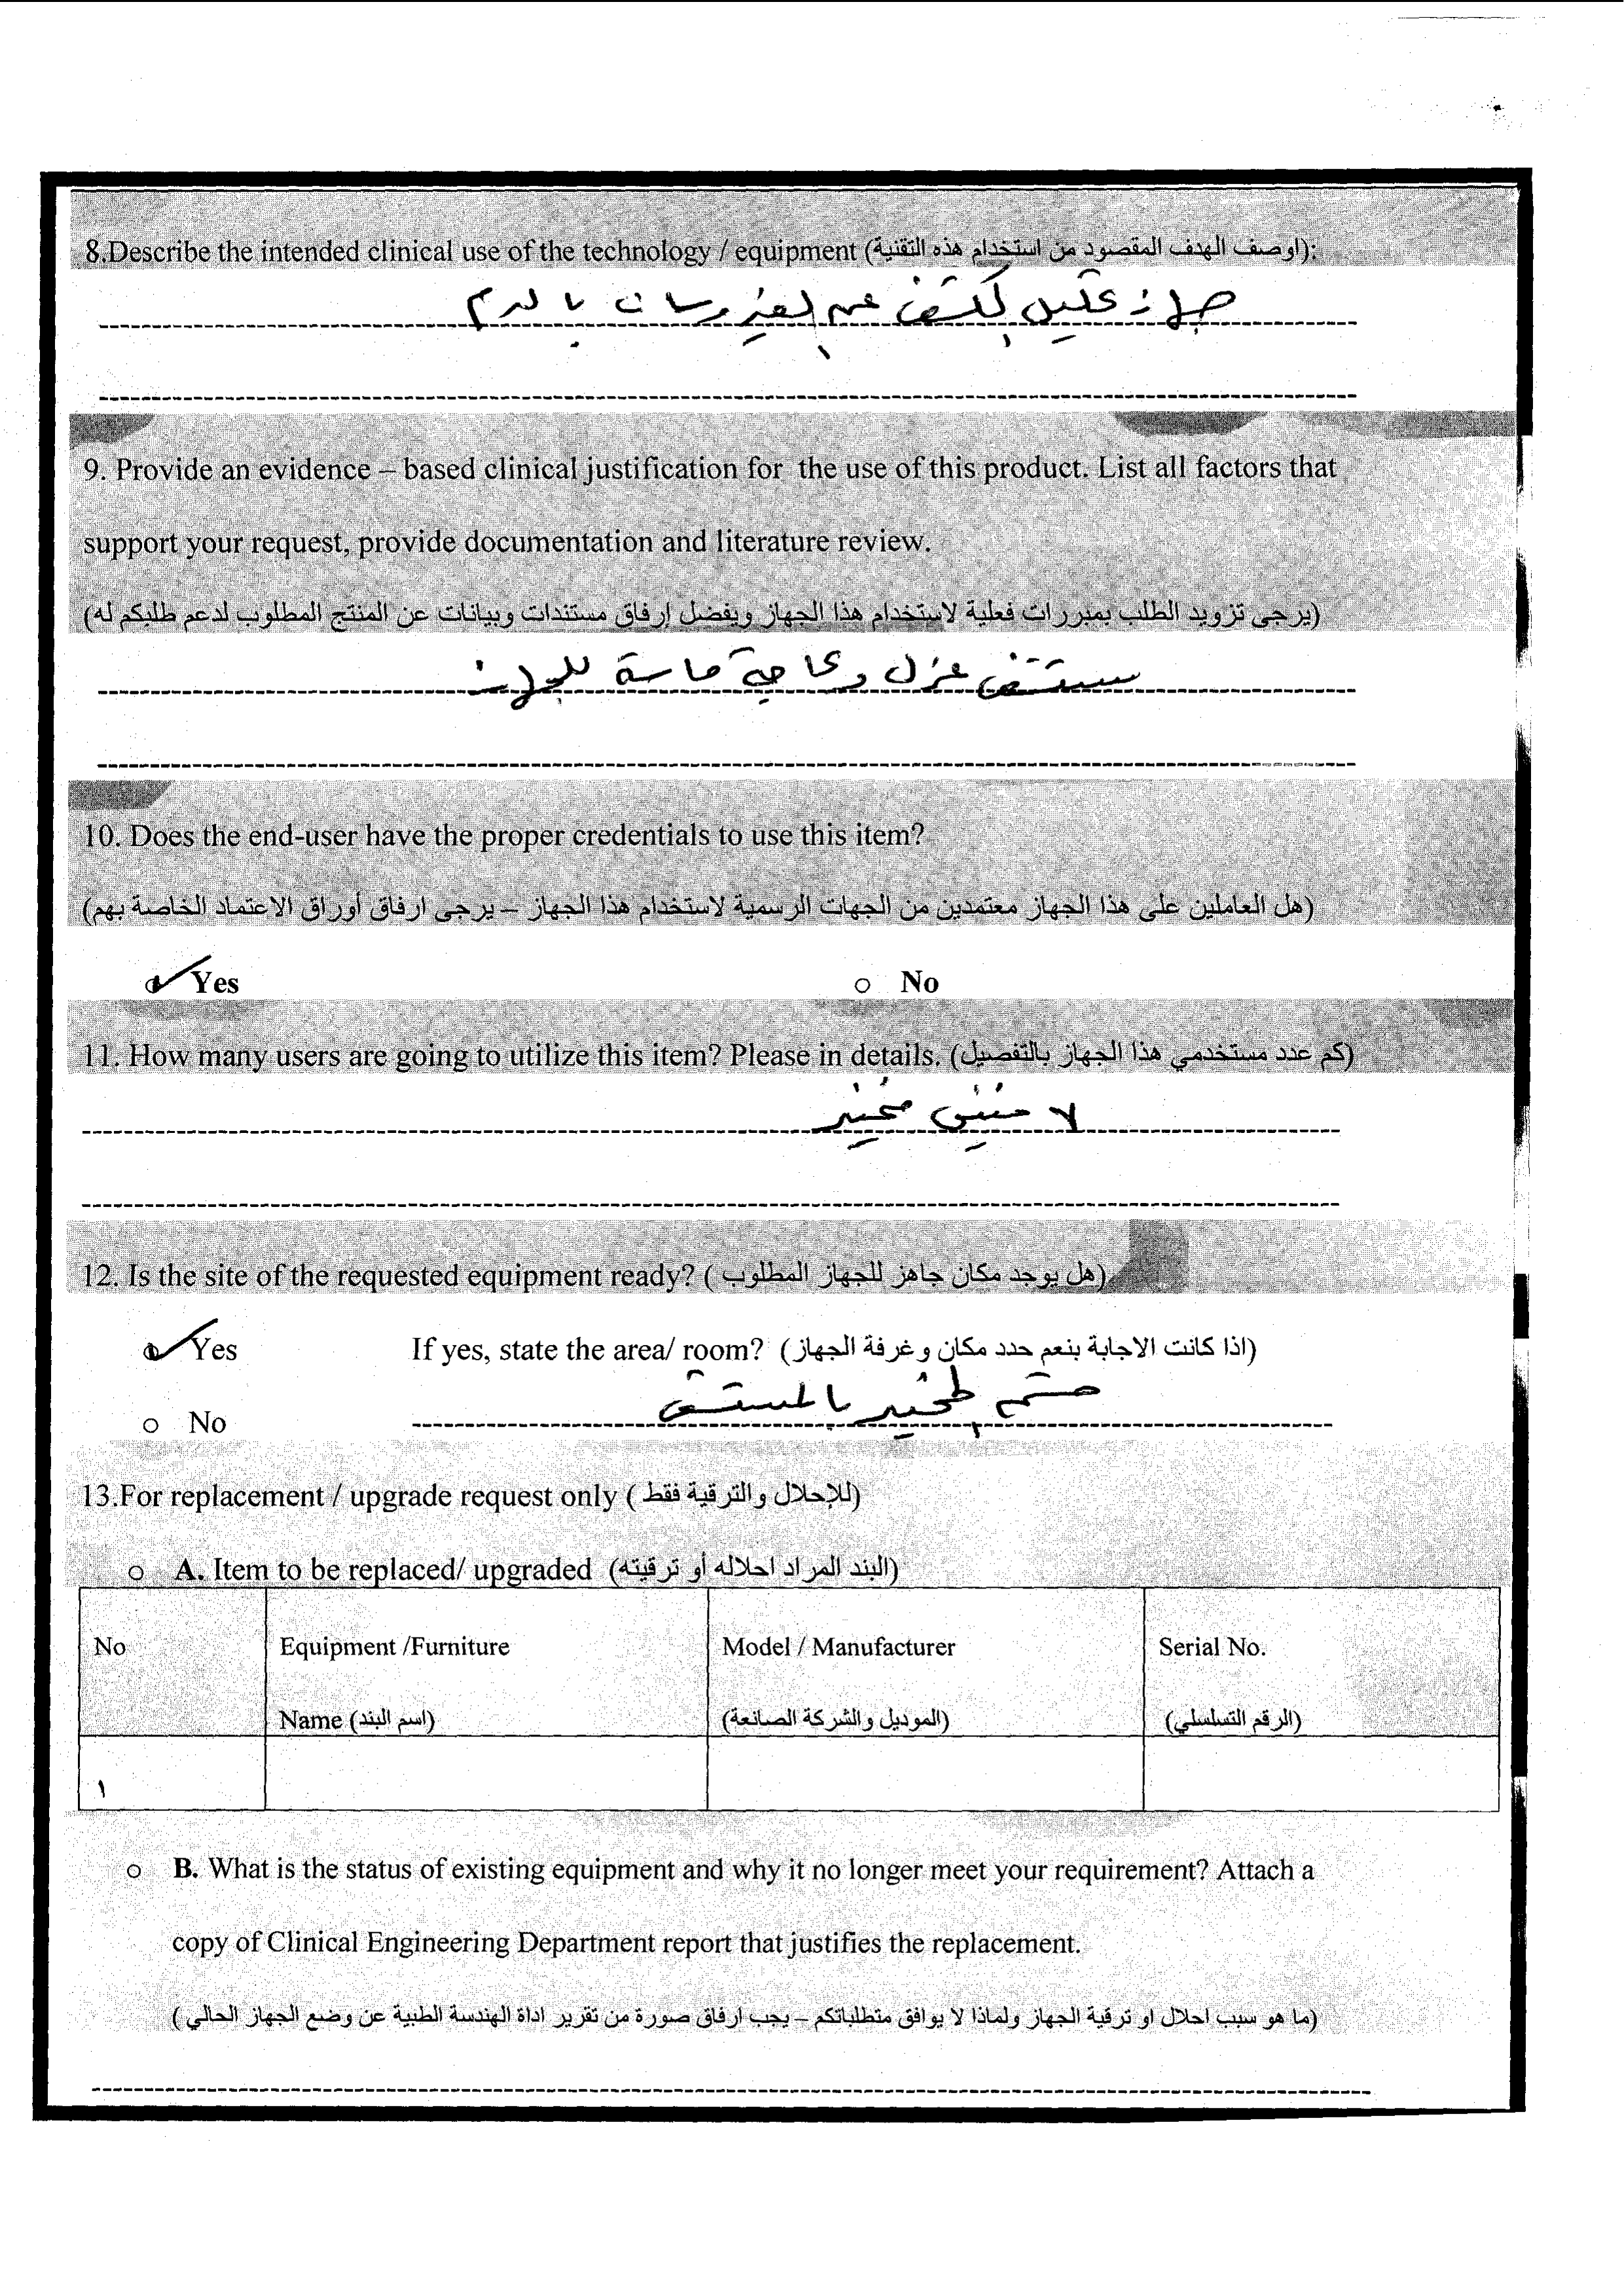 8.Describe the intended clinical use of the technology / equipment (اوصف الهدف المقصود من استخدام هذه التقنية):
جهاز تحليل للكشف عن الفيروسات بالدم
9. Provide an evidence – based clinical justification for the use of this product. List all factors that
support your request, provide documentation and literature review.
(يرجى تزويد الطلب بمبررات فعلية لاستخدام هذا الجهاز ويفضل إرفاق مستندات وبيانات عن المنتج المطلوب لدعم طلبكم له)
مستشفى عزل وبحاجة ماسة للجهاز
10. Does the end-user have the proper credentials to use this item?
(هل العاملين على هذا الجهاز معتمدين من الجهات الرسمية لاستخدام هذا الجهاز – يرجى ارفاق أوراق الاعتماد الخاصة بهم)
Yes
No
11. How many users are going to utilize this item? Please in details. (كم عدد مستخدمي هذا الجهاز بالتفصيل)
مختبر
12. Is the site of the requested equipment ready? (هل يوجد مكان جاهز للجهاز المطلوب)
Yes If yes, state the area/ room? (اذا كانت الاجابة بنعم حدد مكان وغرفة الجهاز)
قسم المختبر بالمستشفى
No
13.For replacement / upgrade request only (للإحلال والترقية فقط)
A. Item to be replaced/ upgraded (البند المراد احلاله أو ترقيته)
No Equipment /Furniture Model / Manufacturer Serial No.
Name (اسم البند) (الموديل والشركة الصانعة) (الرقم التسلسلي)
١
B. What is the status of existing equipment and why it no longer meet your requirement? Attach a
copy of Clinical Engineering Department report that justifies the replacement.
(ما هو سبب احلال او ترقية الجهاز ولماذا لا يوافق متطلباتكم – يجب ارفاق صورة من تقرير اداة الهندسة الطبية عن وضع الجهاز الحالي)